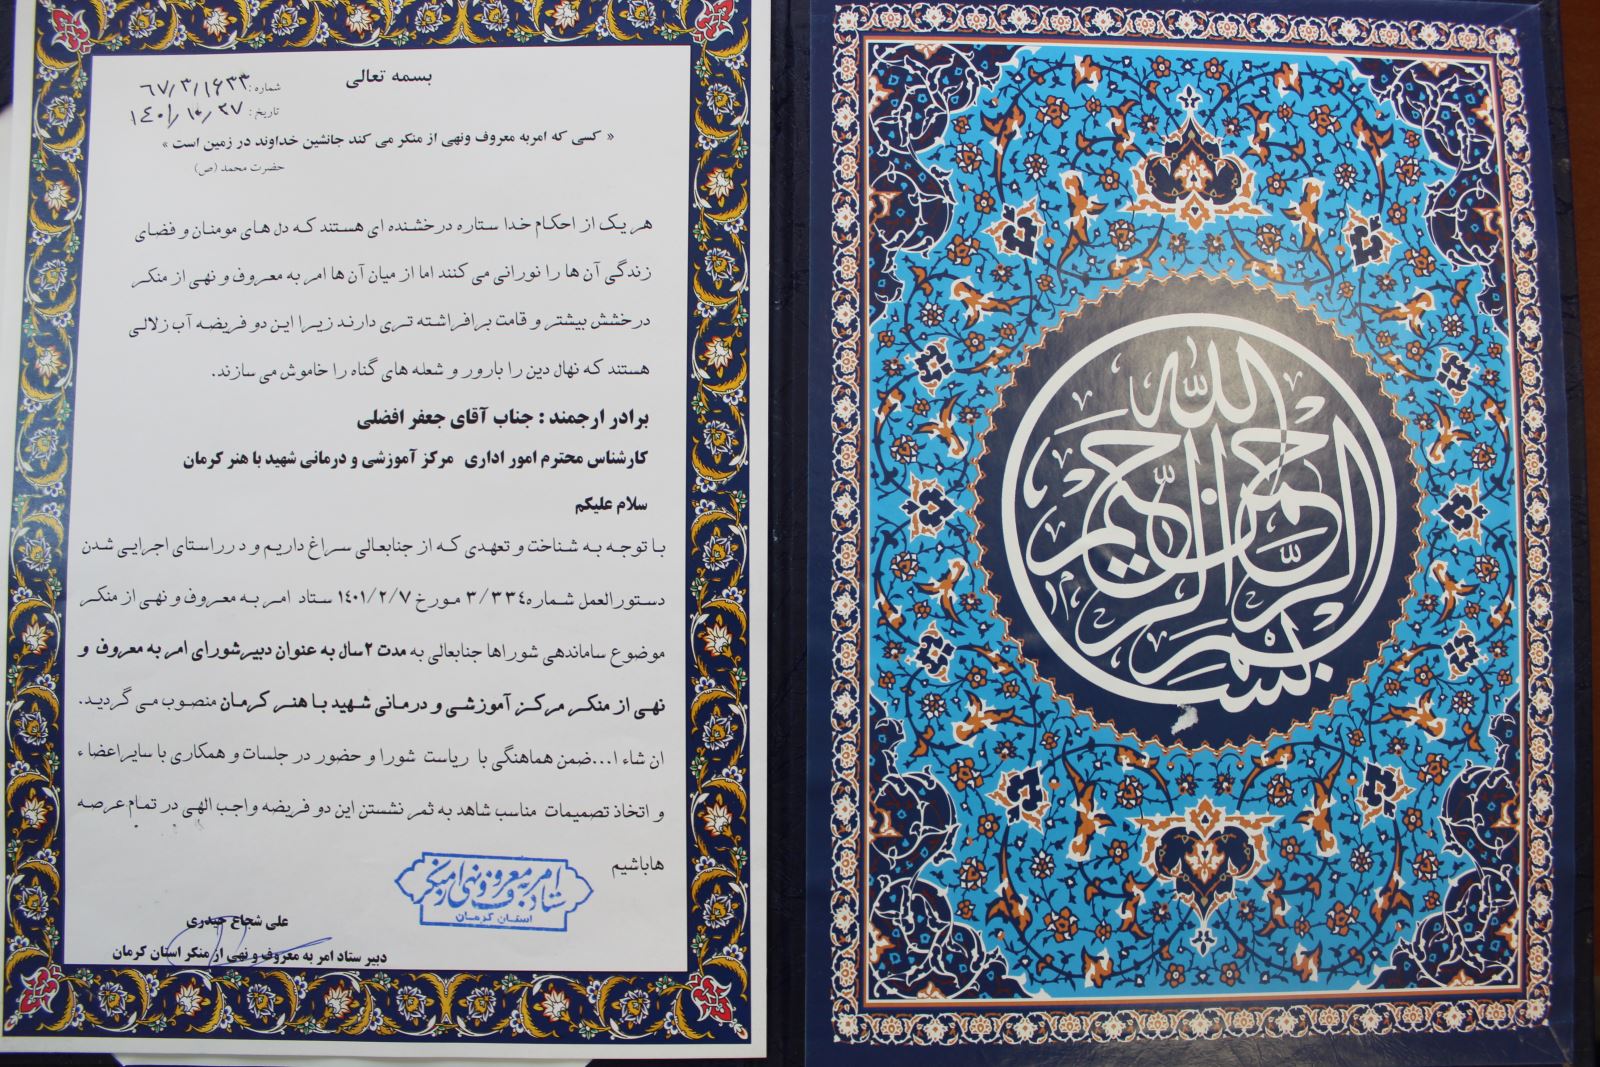 بسمه تعالی
شماره: ۶۷/۳/۱۶۳۳
تاریخ: ۱۴۰۱/۱۰/۲۷
« کسی که امربه معروف ونهی از منکر می کند جانشین خداوند در زمین است »
حضرت محمد (ص)
هریک از احکام خدا ستاره درخشنده ای هستند که دل های مومنان و فضای
زندگی آن ها را نورانی می کنند اما از میان آن ها امر به معروف و نهی از منکر
درخشش بیشتر و قامت برافراشته تری دارند زیرا این دو فریضه آب زلالی
هستند که نهال دین را بارور و شعله های گناه را خاموش می سازند.
برادر ارجمند : جناب آقای جعفر افضلی
کارشناس محترم امور اداری مرکز آموزشی و درمانی شهید با هنر کرمان
سلام علیکم
با توجه به شناخت و تعهدی که از جنابعالی سراغ داریم و در راستای اجرایی شدن
دستورالعمل شماره۳/۳۳۴ مورخ ۱۴۰۱/۲/۷ ستاد امر به معروف و نهی از منکر
موضوع ساماندهی شوراها جنابعالی به مدت ۲سال به عنوان دبیرشورای امر به معروف و
نهی از منکر مرکز آموزشی و درمانی شهید با هنر کرمان منصوب می گردید.
ان شاء ا...ضمن هماهنگی با ریاست شورا و حضور در جلسات و همکاری با سایراعضاء
و اتخاذ تصمیمات مناسب شاهد به ثمر نشستن این دو فریضه واجب الهی در تمام عرصه
هاباشیم
ستاد امر به معروف و نهی از منکر
استان کرمان
علی شجاع حیدری
دبیر ستاد امر به معروف و نهی از منکر استان کرمان
بسم الله الرحمن الرحیم